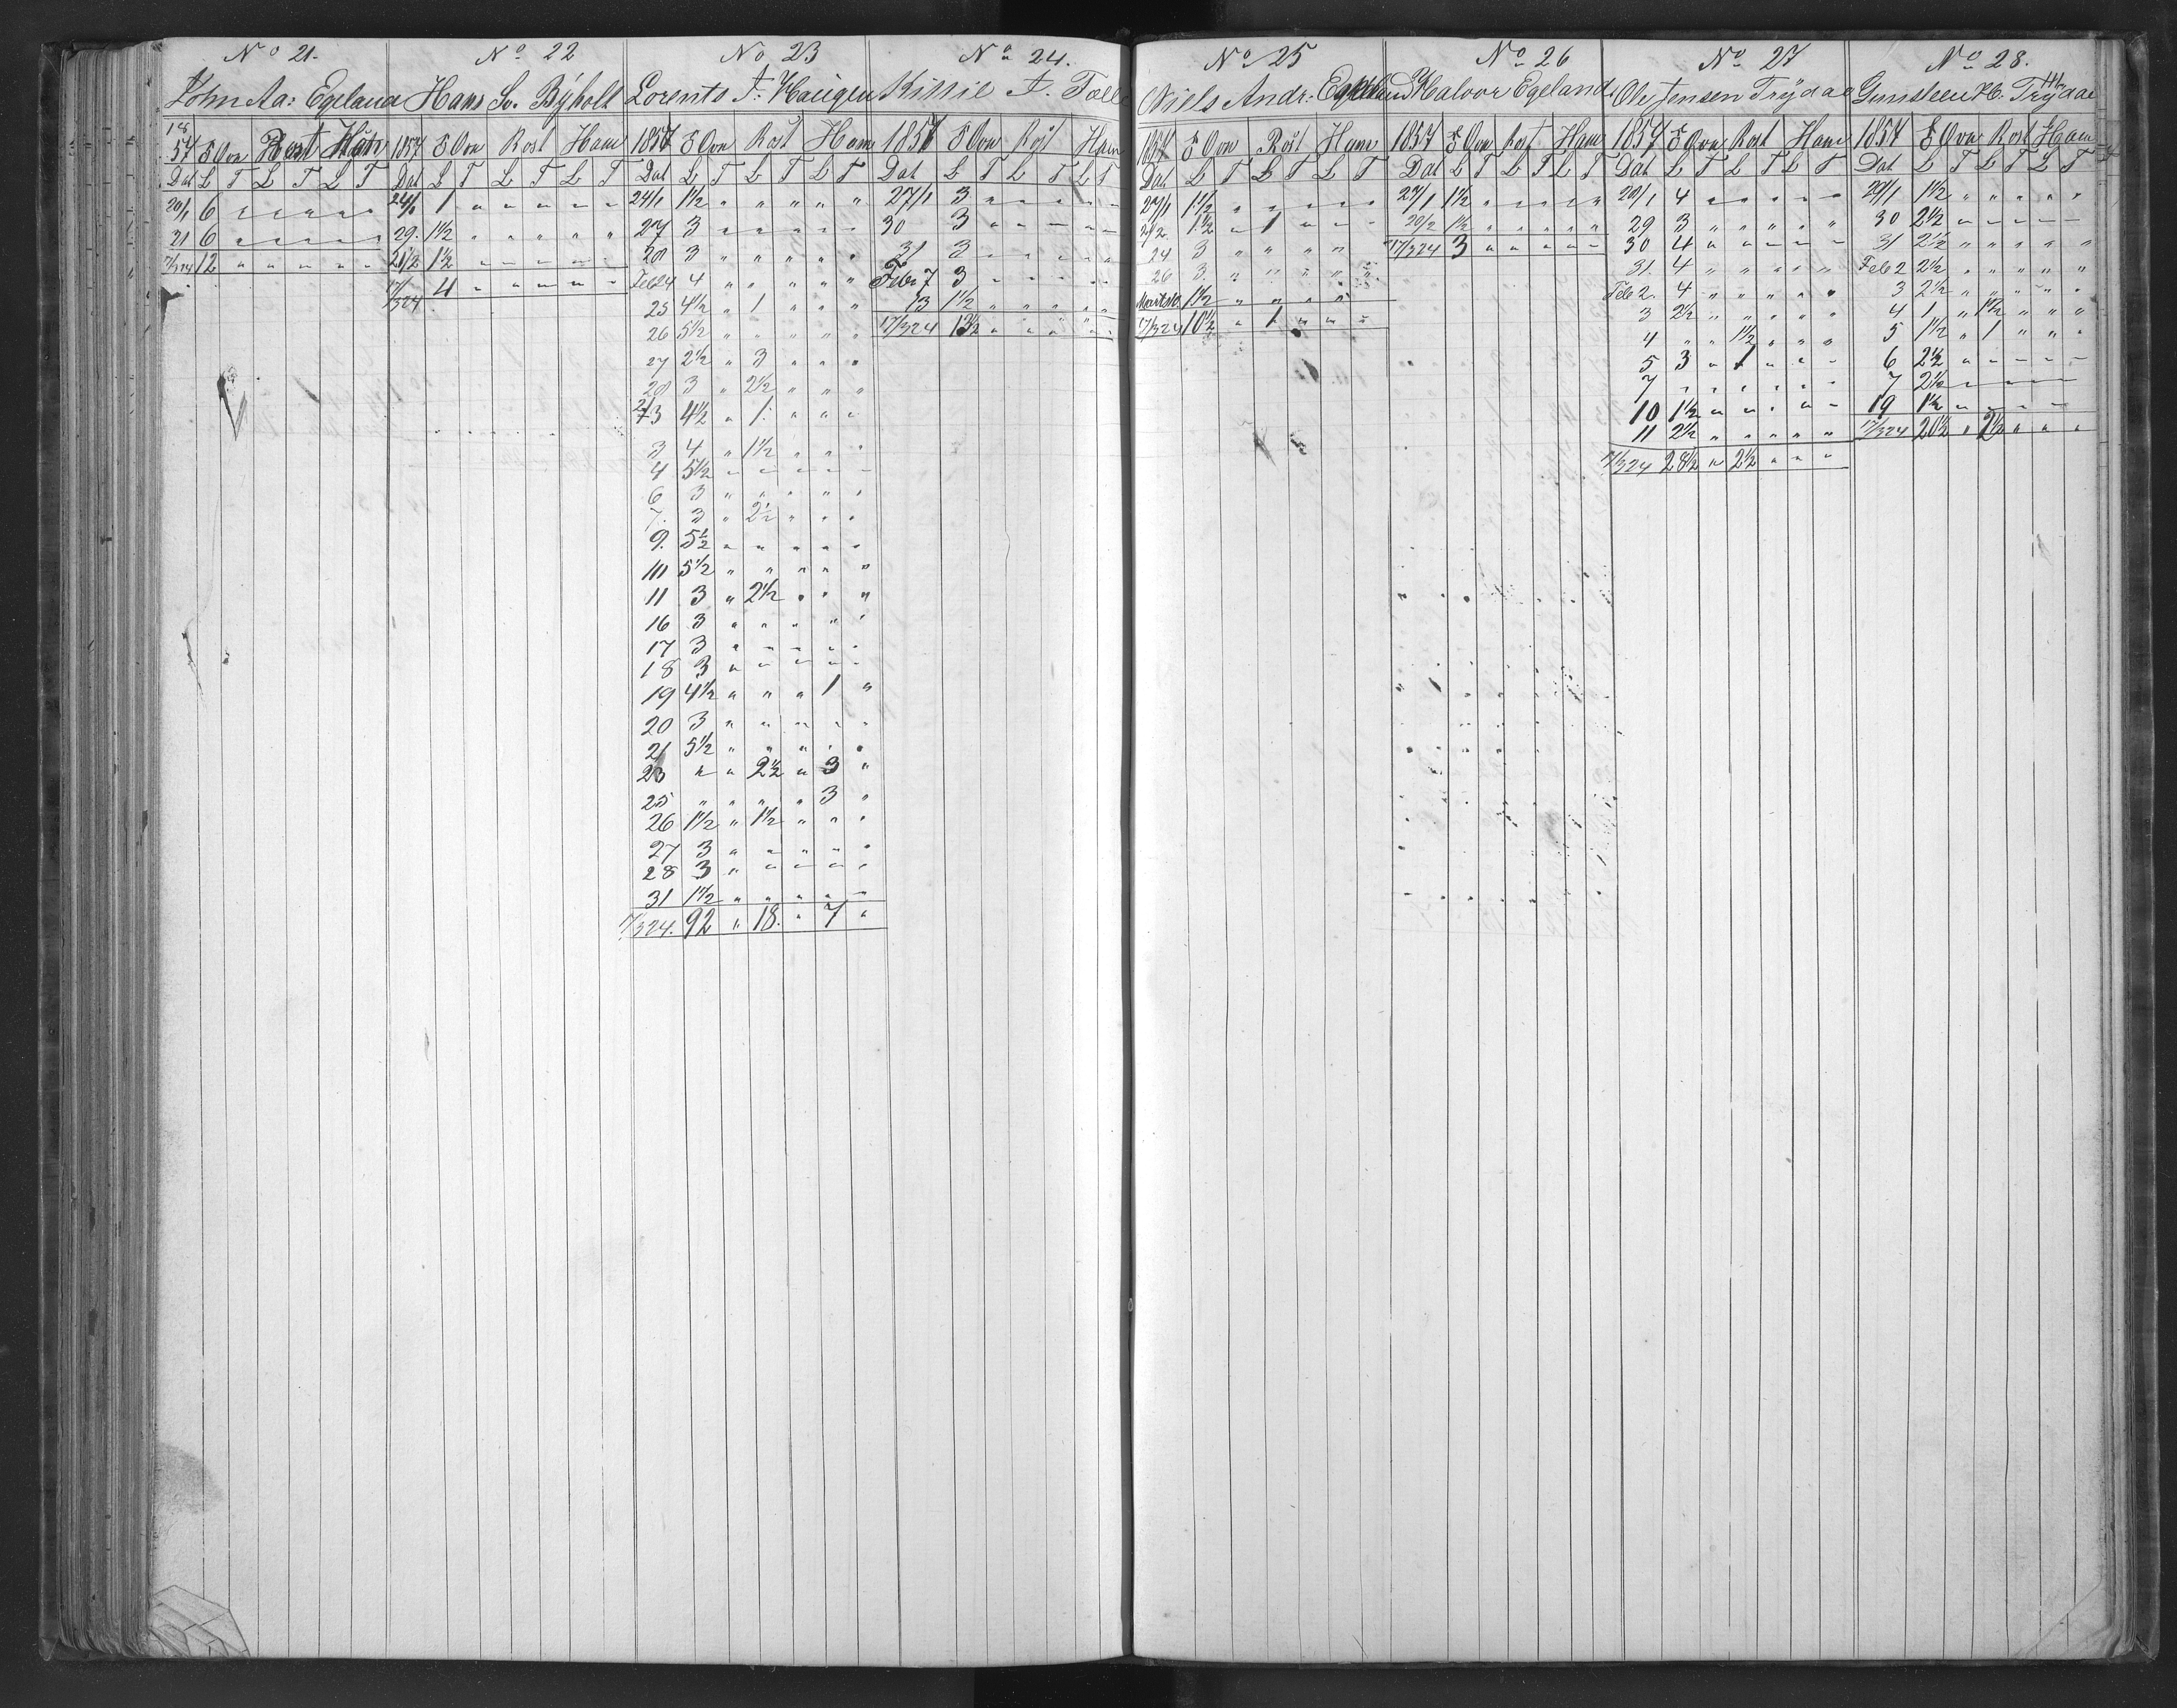 No 21.
John Aa: Egeland
1857 S Ovn Rost Ham
Dat L T L T L T
20/1 6 " " " " "
21 6 " " " " "
17/324 12 " " " " "
No 22
Hans Sv. Byholt
1857 S Ovn Rost Ham
Dat L T L T L T
24/1 1 " " " " "
29. 1½ " " " " "
21/2 1½ " " " " "
17/324 4 " " " " "
No 23
Lorents F: Haugen
1857 S Ovn Rost Ham
Dat L T L T L T
24/1 1½ " " " " "
27 3 " " " " "
28 3 " " " " "
Feb 24 4 " " " " "
25 4½ " 1 " " "
26 5½ " " " " "
27 2½ " 3 " " "
28 3 " 2½ " " "
2/3 4½ " 1. " " "
3 4 " 1½ " " "
4 5½ " " " " "
6 3 " " " " "
7. 3 " 2½ " " "
9. 5½ " " " " "
10 5½ " " " " "
11 3 " 2½ " " "
16 3 " " " " "
17 3 " " " " "
18 3 " " " " "
19 4½ " " " 1 "
20 3 " " " " "
21 5½ " " " " "
23 " " 2½ " 3 "
25 " " " " 3 "
26 1½ " 1½ " " "
27 3 " " " " "
28 3 " " " " "
31 1½ " " " " "
17/324. 92 " 18. " 7 "
No 24.
F. Tolle
1857 S Ovn Rost Ham
Dat L T L T L T
27/1 3 " " " " "
30 3 " " " " "
31 3 " " " " "
Febr 7 3 " " " " "
13 1½ " " " " "
17/324 13½ " " " " "
No 25
Niels Andr: Egeland
1857 S Ovn Rost Ham
Dat L T L T L T
27/1 1½ " " " " "
21/2 1½ " 1 " " "
24 3 " " " " "
26 3. " " " " "
1½ " " " " "
17/324 10½ " 1 " " "
No 26
Halvor Egeland
1857 S Ovn Rost Ham
Dat L T L T L T
27/1 1½ " " " " "
20/2 1½ " " " " "
17/324 3 " " " " "
No 27
Ole Jensen Trydal
1857 S Ovn Rost Ham
Dat L T L T L T
28/1 4 " " " " "
29 3 " " " " "
30 4 " " " " "
31. 4 " " " " "
Feb 2. 4 " " " " "
3 2½ " " " " "
4 " " 1½ " " "
5 3 " 1 " " "
7 " " " " " "
10 1½ " " " " "
11 2½ " " " " "
17/324 28½ " 2½ " " "
No 28.
Gunsteen H. Trydal
1857 S Ovn Rost Ham
Dat L T L T L T
29/1 1½ " " " " "
30 2½ " " " " "
31 2½ " " " " "
Feb 2 2½ " " " " "
3 2½ " " " " "
4 1 " 1½ " " "
5 1½ " 1 " " "
6 2½ " " " " "
7 2½ " " " " "
19 1½ " " " " "
17/324 20½ " 2½ " " "